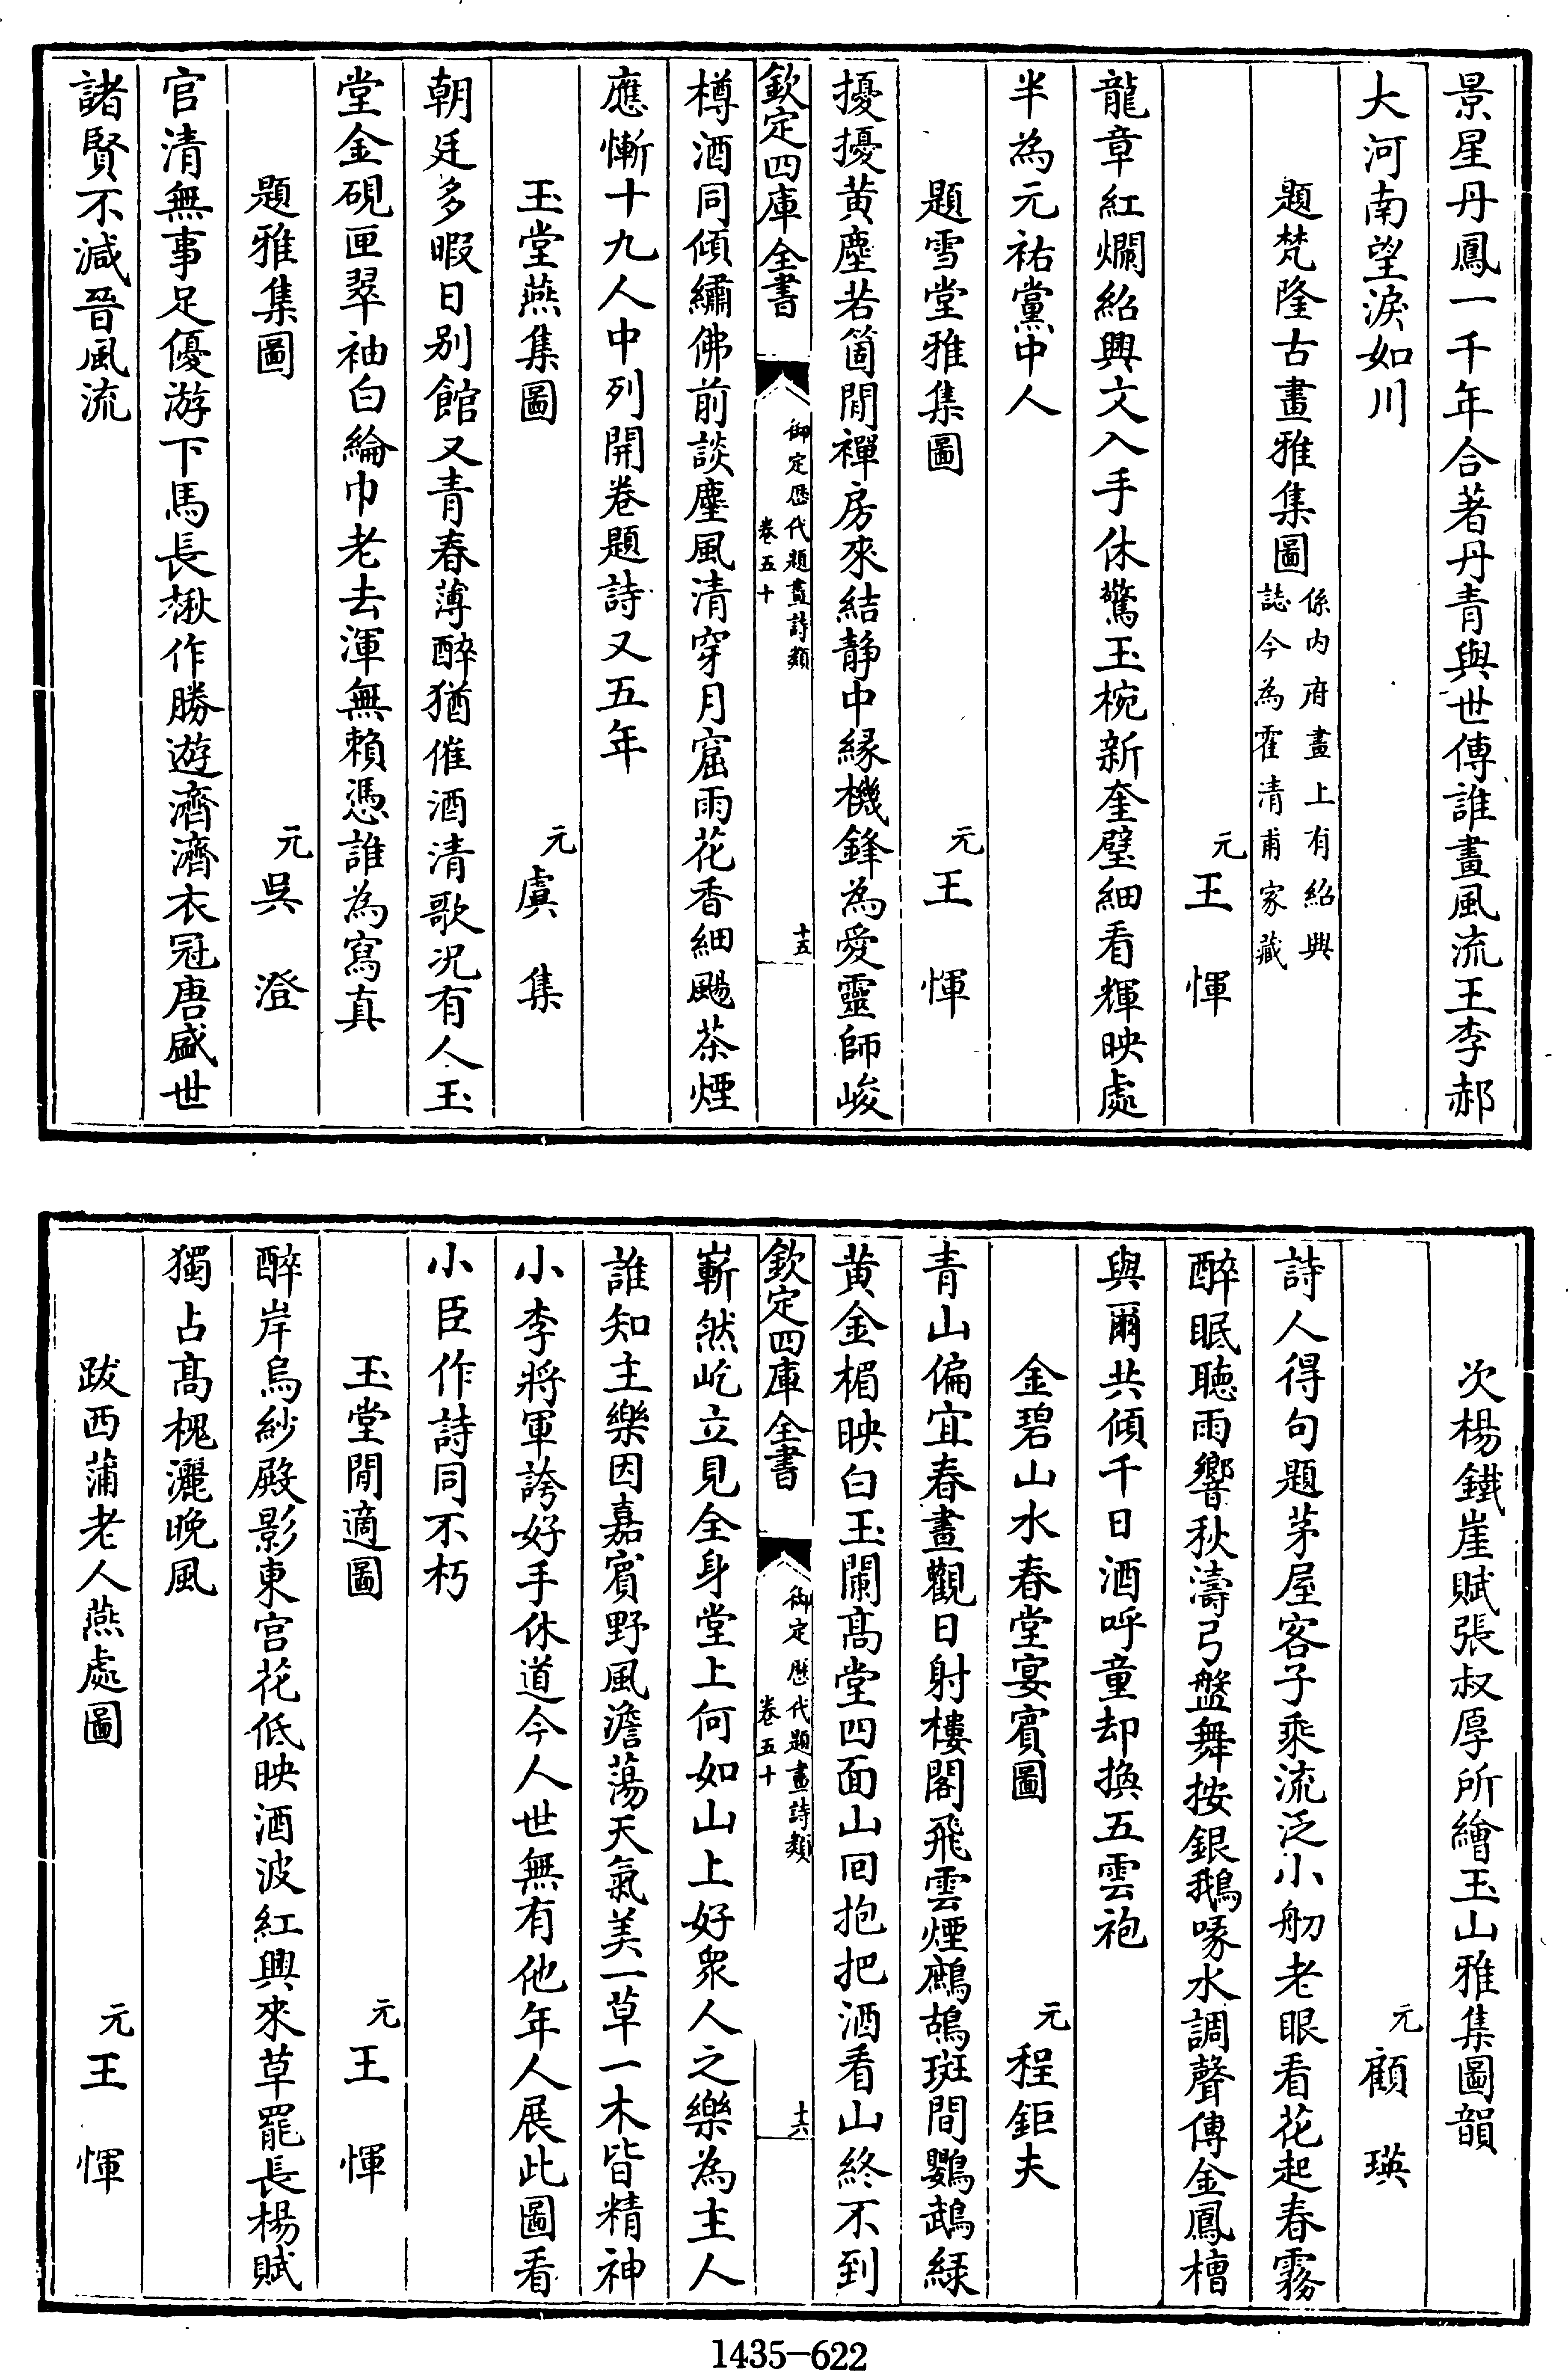 景星丹鳳一千年合著丹青與世傳誰畫風流王李郝
大河南望淚如川
題梵隆古畫雅集圖係内府畫上有紹興
誌今為霍清甫家藏
元王惲
龍章紅爛紹興文入手休驚玉椀新奎璧細看輝映處
半為元祐黨中人
題雪堂雅集圖
元王惲
擾擾黄塵若箇閒禪房來結静中緣機鋒為愛靈師峻
欽定四庫全書
御定歴代題畫詩類
卷五十
十五
樽酒同傾繡佛前談麈風清穿月窟雨花香細颺茶煙
應慚十九人中列開卷題詩又五年
玉堂燕集圖
元虞集
朝廷多暇日别館又青春薄醉猶催酒清歌况有人玉
堂金硯匣翠袖白綸巾老去渾無賴憑誰為寫真
題雅集圖
元吳澄
官清無事足優游下馬長楸作勝遊濟濟衣冠唐盛世
諸賢不減晉風流
次楊鐵崖賦張叔厚所繪玉山雅集圖韻
元顧瑛
詩人得句題茅屋客子乘流泛小舠老眼看花起春霧
醉眠聽雨響秋濤弓盤舞按銀鵝喙水調聲傳金鳳槽
與爾共傾千日酒呼童却換五雲袍
金碧山水春堂宴賓圖
元程鉅夫
青山偏宜春晝觀日射樓閣飛雲煙鷓鴣斑間鸚鵡緑
黄金楣映白玉闌髙堂四面山回抱把酒看山終不到
欽定四庫全書
御定歴代題畫詩類
卷五十
十六
嶄然屹立見全身堂上何如山上好衆人之樂為主人
誰知主樂因嘉賓野風澹蕩天氣美一草一木皆精神
小李將軍誇好手休道今人世無有他年人展此圖看
小臣作詩同不朽
玉堂閒適圖
元王惲
醉岸烏紗殿影東宫花低映酒波紅興來草罷長楊賦
獨占髙槐灑晚風
跋西蒲老人燕處圖
元王惲
1435-622